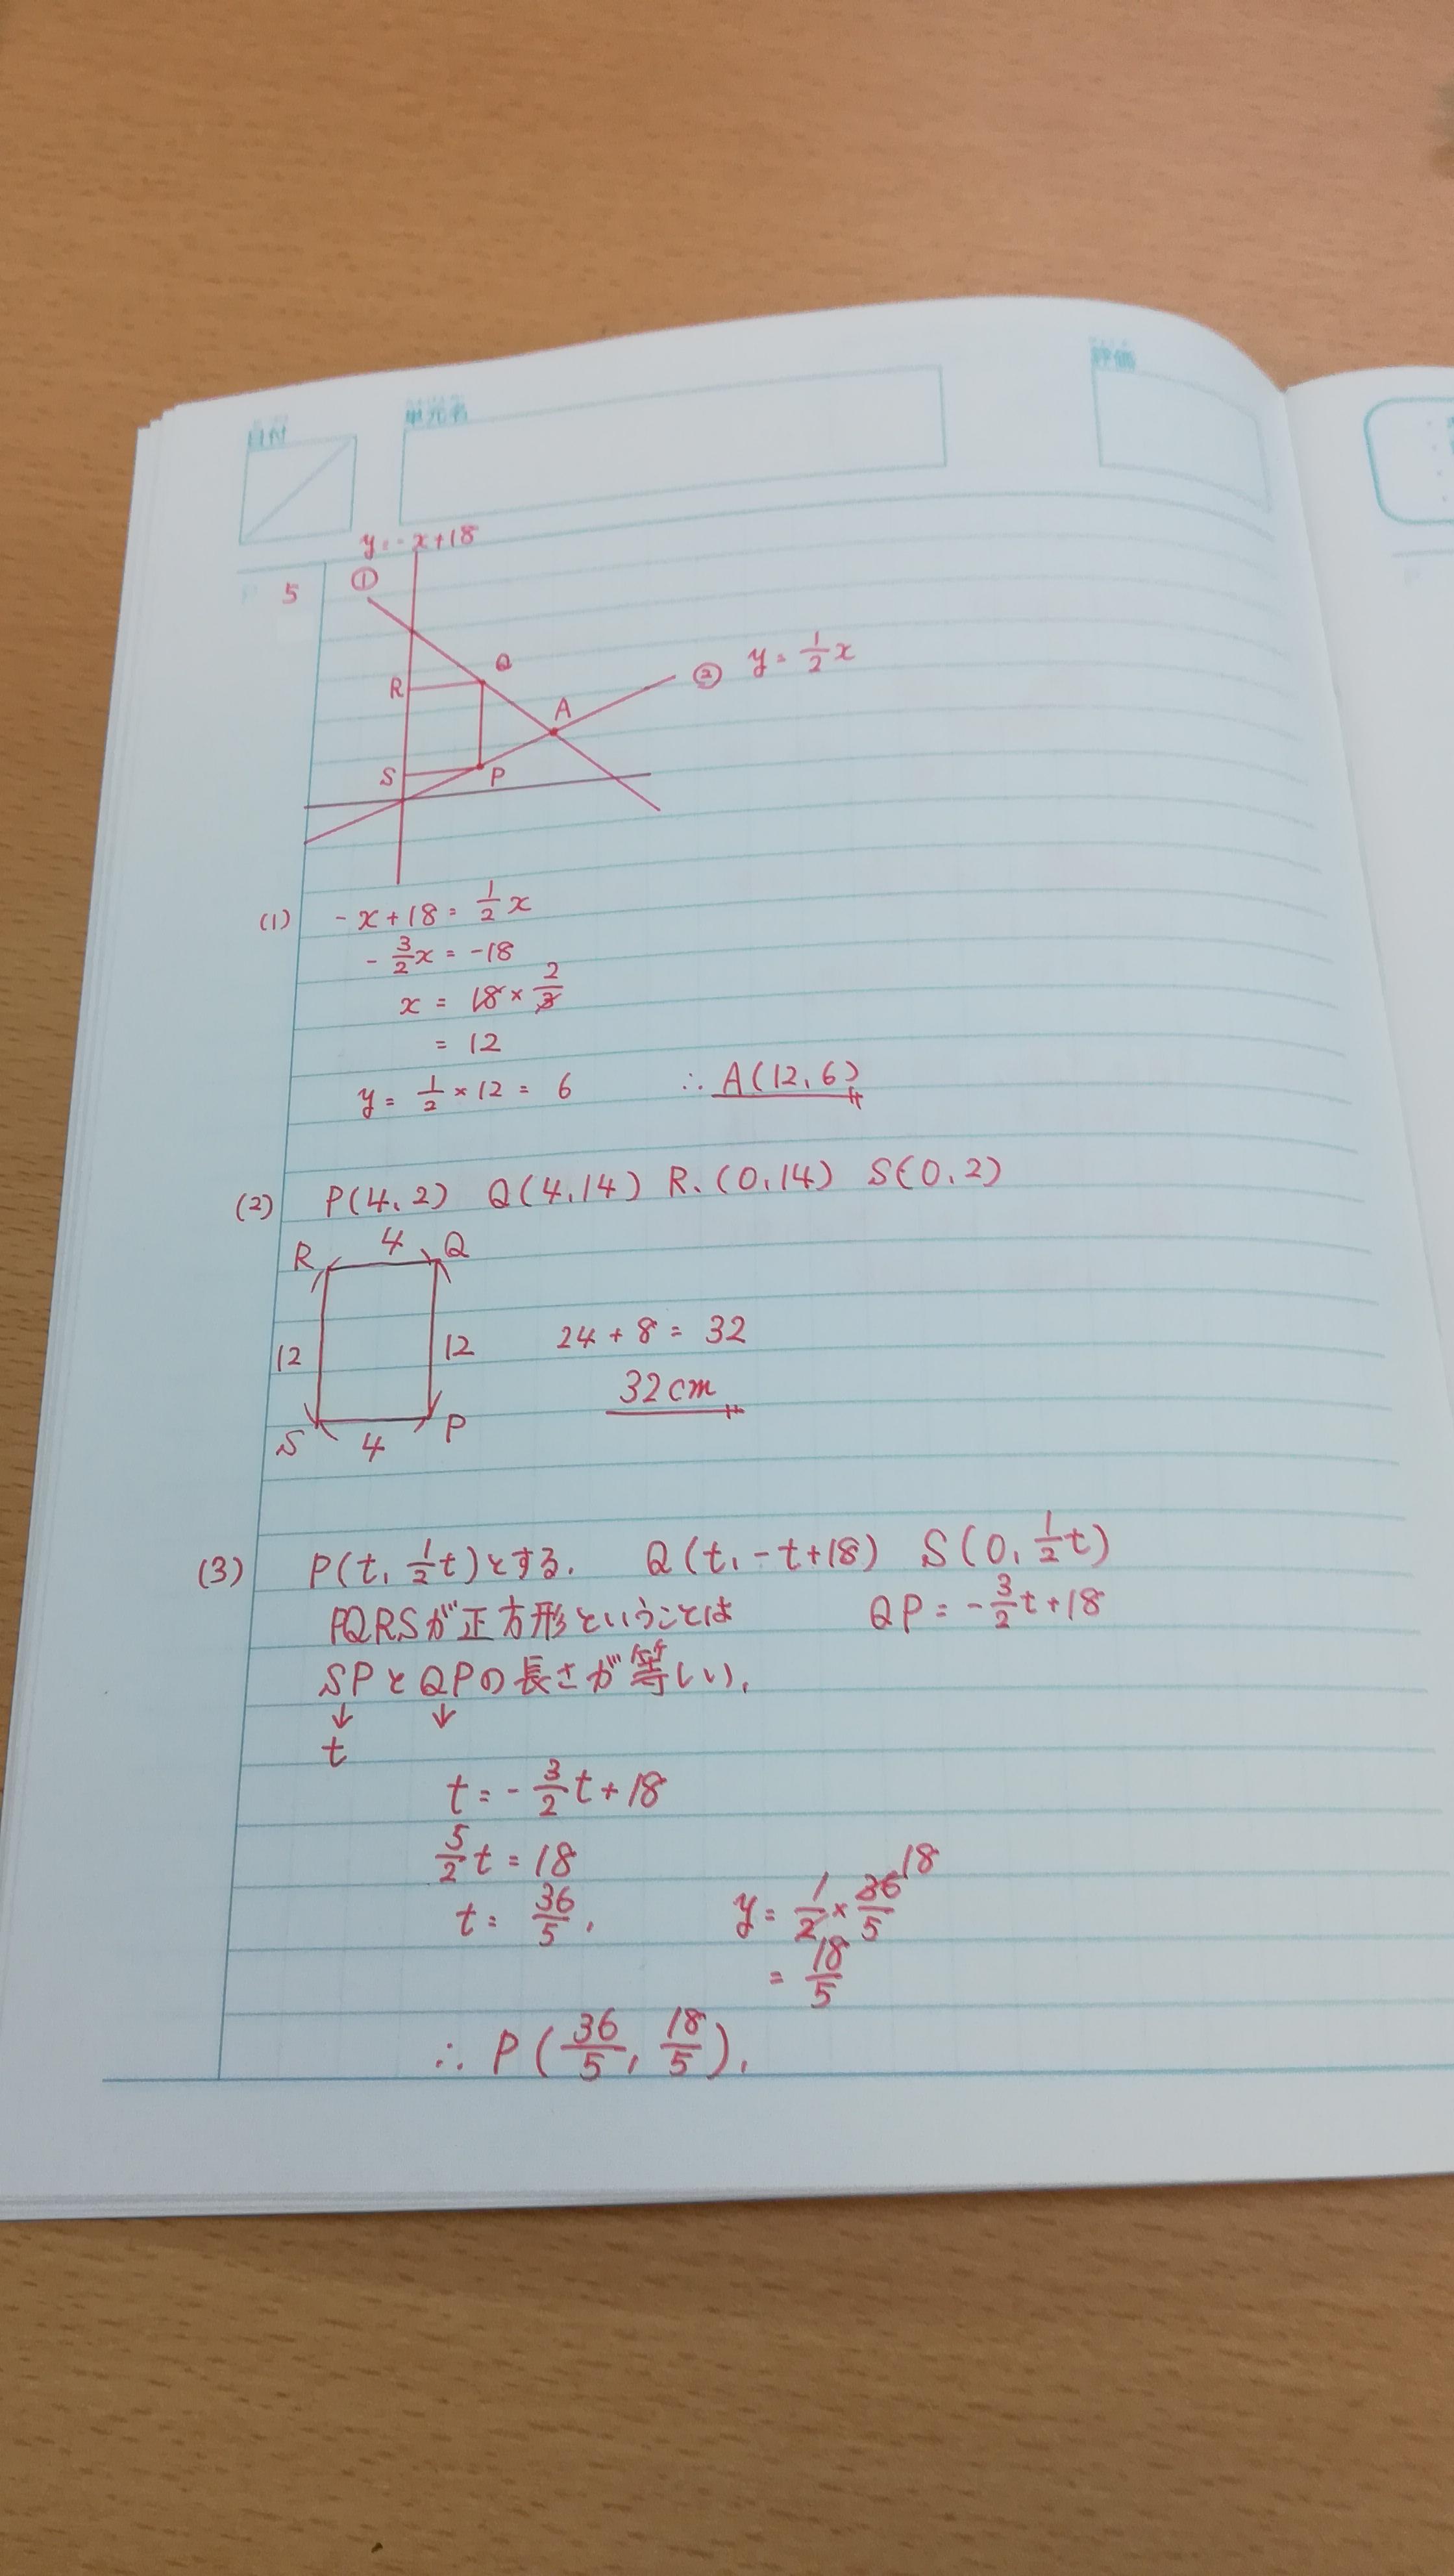 日付
単元名
評価
y=-x+18
5
①
Q
R
② y=1/2x
A
S
P
(1) -x+18=1/2x
-3/2x=-18
x=18×2/3
=12
y=1/2×12=6 ∴A(12,6)
(2) P(4,2) Q(4,14) R.(0,14) S(0,2)
R 4 Q
12 12 24+8=32
32cm
S 4 P
(3) P(t,1/2t)とする. Q(t,-t+18) S(0,1/2t)
PQRSが正方形ということは QP=-3/2t+18
SPとQPの長さが等しい.
↓ ↓
t
t=-3/2t+18
5/2t=18
t=36/5. y=1/2×36/5 18
=18/5
∴P(36/5,18/5).